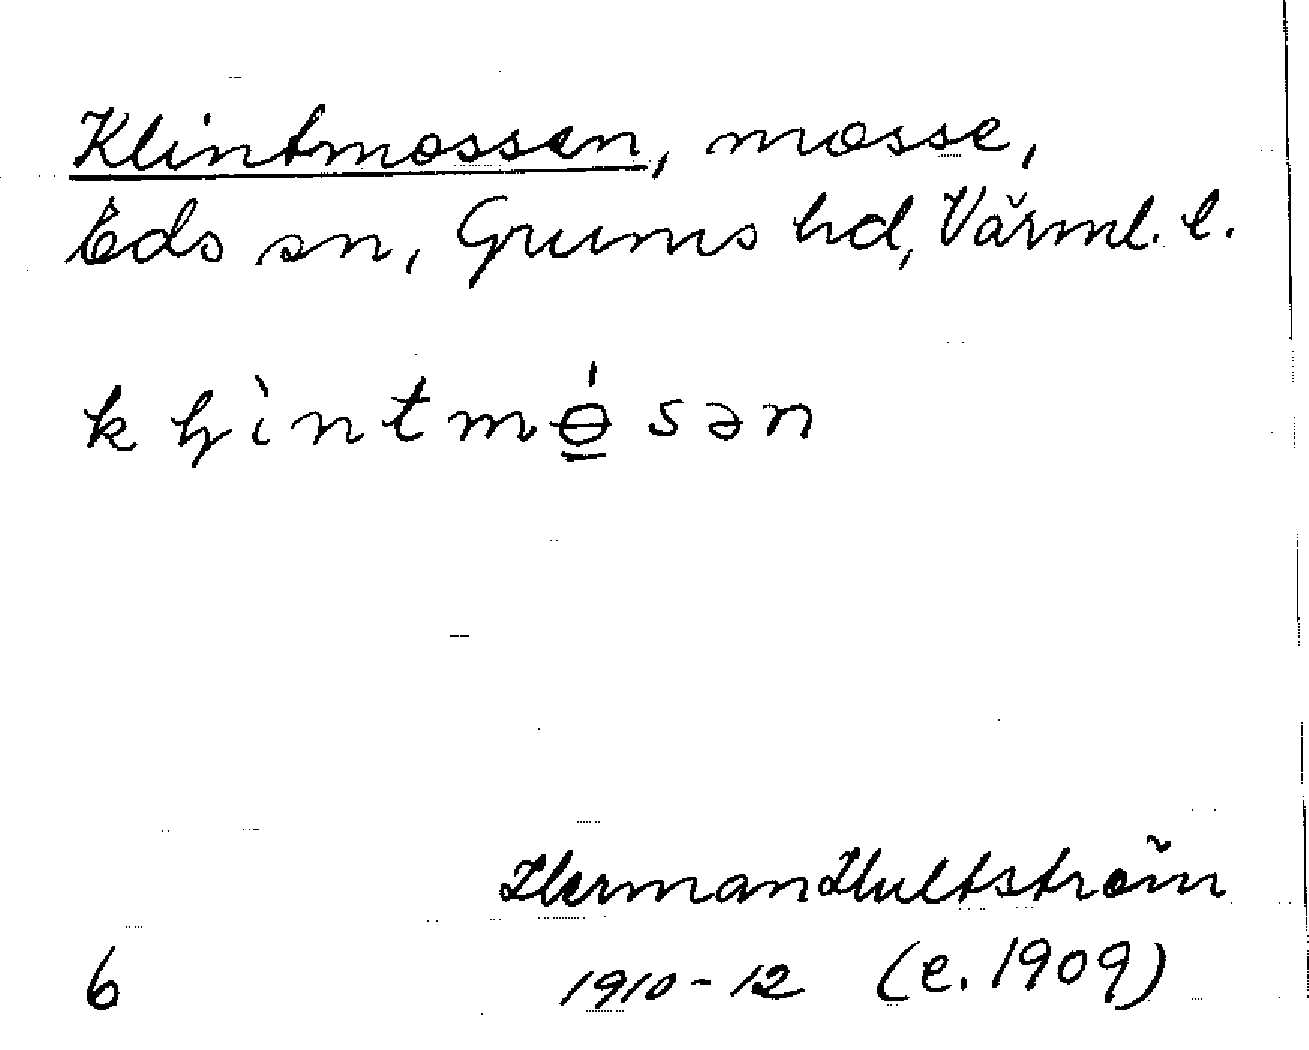 Klintmossen, mosse,
Eds sn, Grums hd, Värml. l.
kɭìntmɵ̲́sən
Herman Hultström
6 1910-12 (e. 1909)